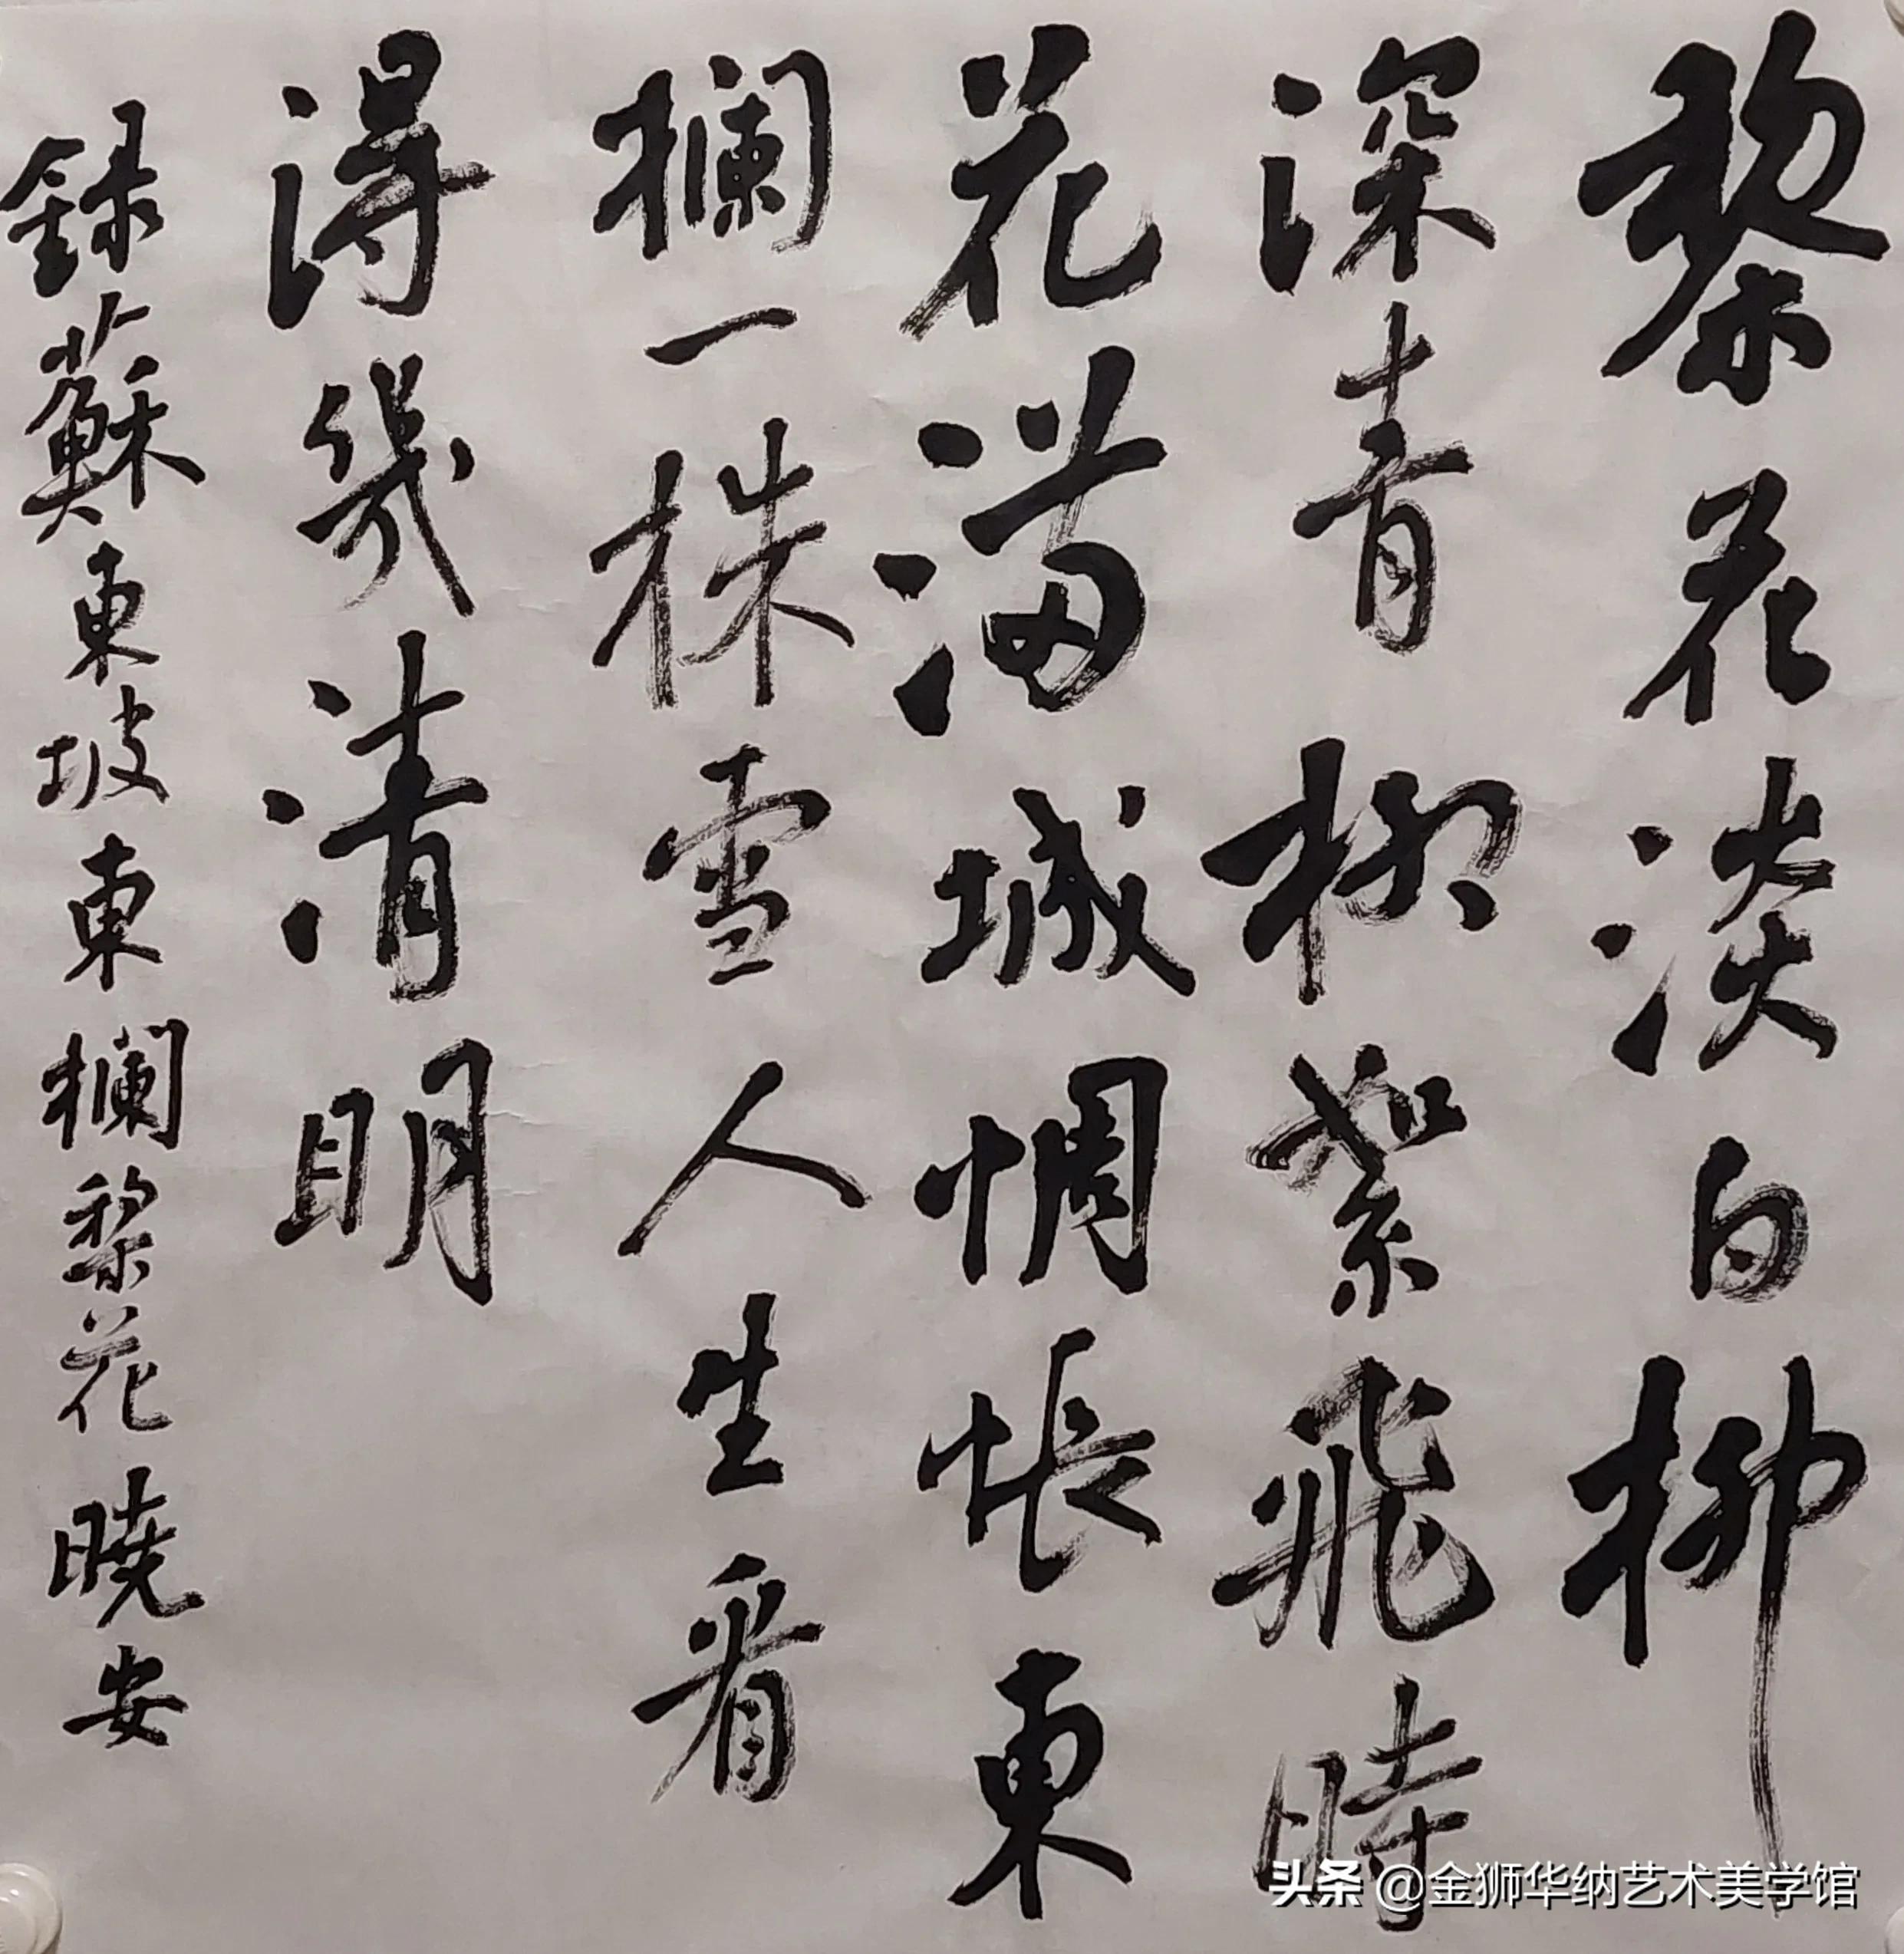 黎花淡白柳
深青柳絮飛時
花滿城惆悵東
欄一株雪人生看
得幾清明
録蘇東坡東欄黎花 曉安
头条 @金狮华纳艺术美学馆